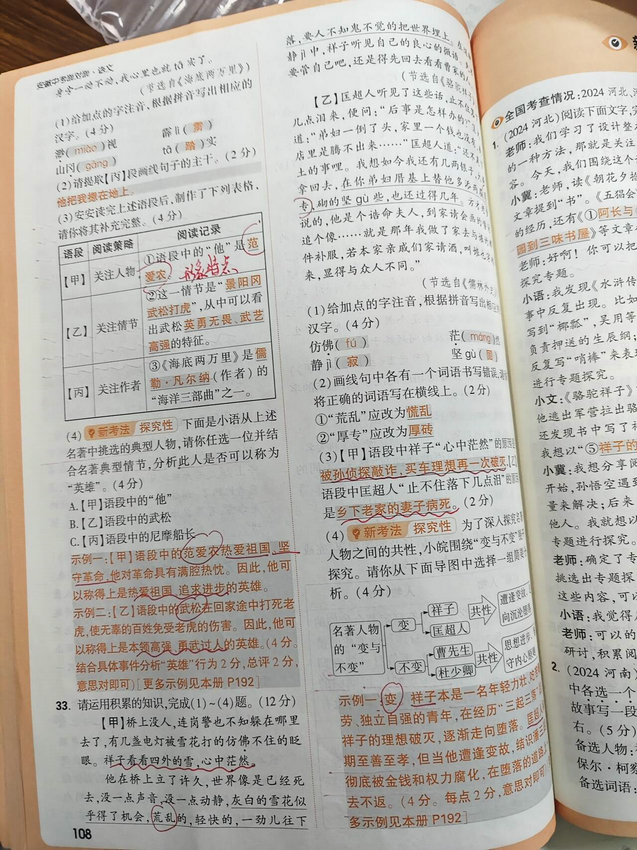 今一动不动,我心里也就
(节选自《海底两万里》)
(1)给加点的字注音,根据拼音写出相应的
汉字。(4分)
(miǎo)视 霹lì(雳)
山冈(gāng) tà(踏)实
(2)请提取【丙】段画线句子的主干。(2分)
他把我摁在地上。
(3)安安读完上述语段后,制作了下列表格,
请你将其补充完整。(4分)
语段 阅读策略 阅读记录
【甲】 关注人物 ①语段中的“他”是范
爱农
形象特点
【乙】 关注情节 ②这一情节是“景阳冈
武松打虎”,从中可以看
出武松英勇无畏、武艺
高强的特征。
【丙】 关注作者 ③《海底两万里》是儒
勒·凡尔纳(作者)的
“海洋三部曲”之一。
(4) 新考法 探究性 下面是小语从上述
名著中挑选的典型人物,请你任选一位并结
合名著典型情节,分析此人是否可以称为
“英雄”。(4分)
A.【甲】语段中的“他”
B.【乙】语段中的武松
C.【丙】语段中的尼摩船长
示例一:【甲】语段中的范爱农热爱祖国,坚
守革命,他对革命具有满腔热忱。因此,他可
以称得上是热爱祖国、追求进步的英雄。
示例二:【乙】语段中的武松在回家途中打死老
虎,使无辜的百姓免受老虎的伤害。因此,他可
以称得上是本领高强、勇武过人的英雄。(4分。
结合具体事件分析“英雄”行为2分,总评2分,
意思对即可)[更多示例见本册P192]
33. 请运用积累的知识,完成(1)~(4)题。(12分)
【甲】桥上没人,连岗警也不知躲在哪里
去了,有几盏电灯被雪花打的仿佛不住的眨
眼。祥子看看四外的雪,心中茫然。
他在桥上立了许久,世界像是已经死
去,没一点声音,没一点动静,灰白的雪花似
乎得了机会,荒乱的,轻快的,一劲儿往下
108
落,要人不知鬼不觉的把世界埋上。在
静jì中,祥子听见自己的良心的微语。
要管自己吧,还是得先回去看看曹家的人
(节选自《骆驼祥子》)
【乙】匡超人听了这些话,止不住
几点泪来,便问:“后事是怎样办的
道:“弟妇一倒了头,家里一个钱也没有
店里是腾不出来……”匡超人道:
土的事哩。我想如今我还有几两银子,
拿回去,在你弟妇厝基上替他多添两层
专,砌的坚gù些,也还过得几年。
说的,他是个诰命夫人,到家请会画的
追个像……就是那年我做了家去与娘的
件补服,若本家亲戚们家请酒,叫娘也穿
来,显得与众人不同。”
(节选自《儒林外史》)
(1)给加点的字注音,根据拼音写出相应
汉字。(4分)
仿佛(fú) 茫(máng)
静jì(寂) 坚gù(固)
(2)画线句中各有一个词语书写错误,请
将正确的词语写在横线上。(2分)
①“荒乱”应改为慌乱
②“厚专”应改为厚砖
(3)【甲】语段中祥子“心中茫然”的原因是
被孙侦探敲诈,买车理想再一次破灭;【乙】
语段中匡超人“止不住落下几点泪”的原因
是乡下老家的妻子病死。(2分)
(4) 新考法 探究性 为了深入探究名著
人物之间的共性,小皖围绕“变与不变”展开
探究。请你从下面导图中选择一组期
析。(4分)
名著人物
的“变与
不变”
变
祥子
匡超人
共性
遭逢变故,
向沉沦堕
不变
曹先生
杜少卿
共性
思想进步,
守内心
示例一:变 祥子本是一名年轻力壮、
劳、独立自强的青年,在经历“三起三落”
祥子的理想破灭,逐渐走向堕落。匡超人
期至善至孝,但当他遭逢变故,结识
彻底被金钱和权力腐化,在堕落的道路上
去不返。(4分。每点2分,意思对即可)
多示例见本册P192]
全国考查情况:2024河北,
1. (2024河北)阅读下面文字,完
老师:我们学习了设计整
的一种方法,那就是关注
容。今天,我们围绕这个
小冀:老师,读《朝花夕拾
文章提到“书”。《五猖会
的经历,还有《①阿长与
园到三味书屋》等文章
老师:好啊!你可以把
探究专题。
小语:我发现《水浒传
事中反复出现。比
写到“椰瓢”,吴用等
负责押送的生辰纲;
反复写“哨棒”来表现
进行专题探究。
小文:《骆驼祥子》
他逃出军营拉出骆
还发现书中写了
我想以“⑤祥子的
小冀:我想分享阅
开始,孙悟空遇到
量来解决;后来
他人。我就想以
专题进行探究。
老师:确定了专
挑选出专题探
这些内容,可以
小语:我觉得
老师:可以的
研讨,积累阅
2. (2024河南)
中各选一个
故事写一段
右。(5分)
备选人物:
保尔·柯察
备选词语: